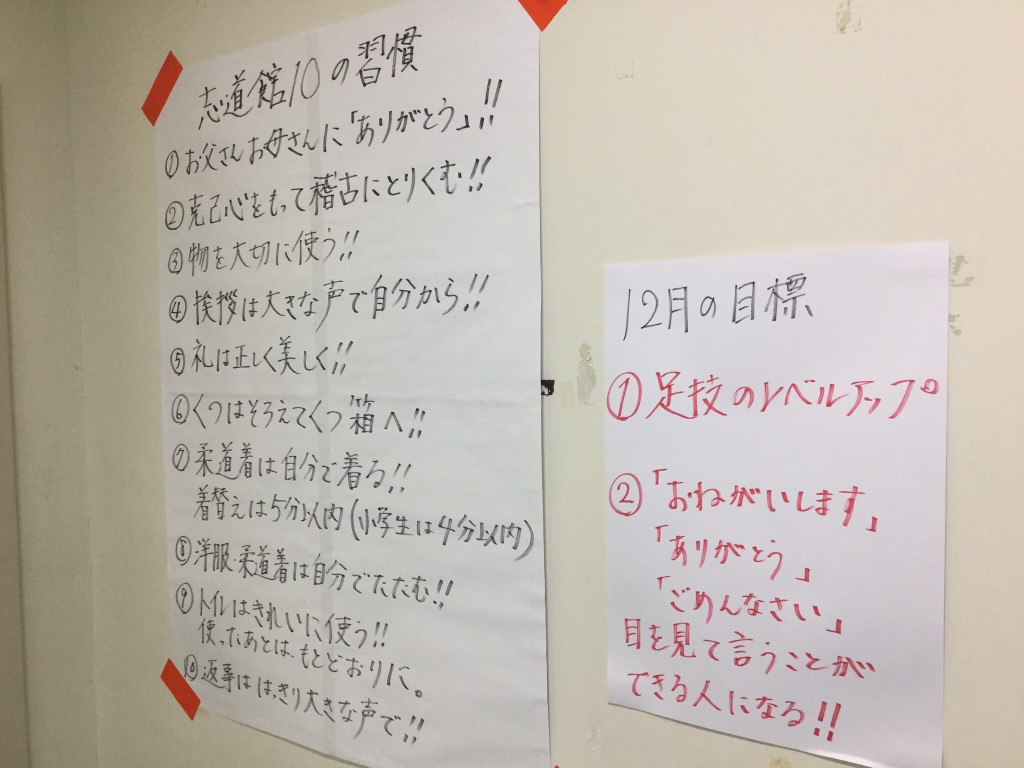 志道館10の習慣
①お父さんお母さんに「ありがとう」!!
②克己心をもって稽古にとりくむ!!
③物を大切に使う!!
④挨拶は大きな声で自分から!!
⑤礼は正しく美しく!!
⑥くつはそろえてくつ箱へ!!
⑦柔道着は自分で着る!!
着替えは5分以内(小学生は4分以内)
⑧洋服・柔道着は自分でたたむ!!
⑨トイレはきれいに使う!!
使ったあとは、もとどおりに。
⑩返事ははっきり大きな声で!!
12月の目標
①足技のレベルアップ
②「おねがいします」
「ありがとう」
「ごめんなさい」
目を見て言うことが
できる人になる!!